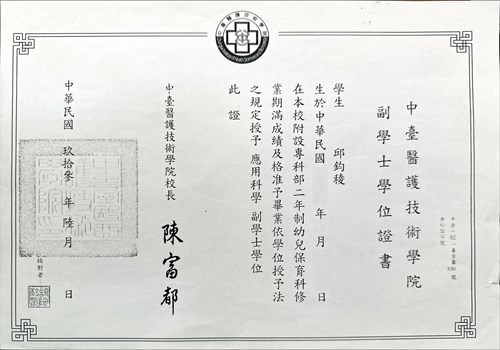 中臺醫護技術學院
副學士學位證書
學生 邱鈞稜
生於中華民國 年 月 日
在本校附設專科部二年制幼兒保育科修
業期滿成績及格准予畢業依學位授予法
之規定授予 應用科學 副學士學位
此證
中臺醫護技術學院校長 陳富都
中華民國 玖拾叄 年 陸 月 日